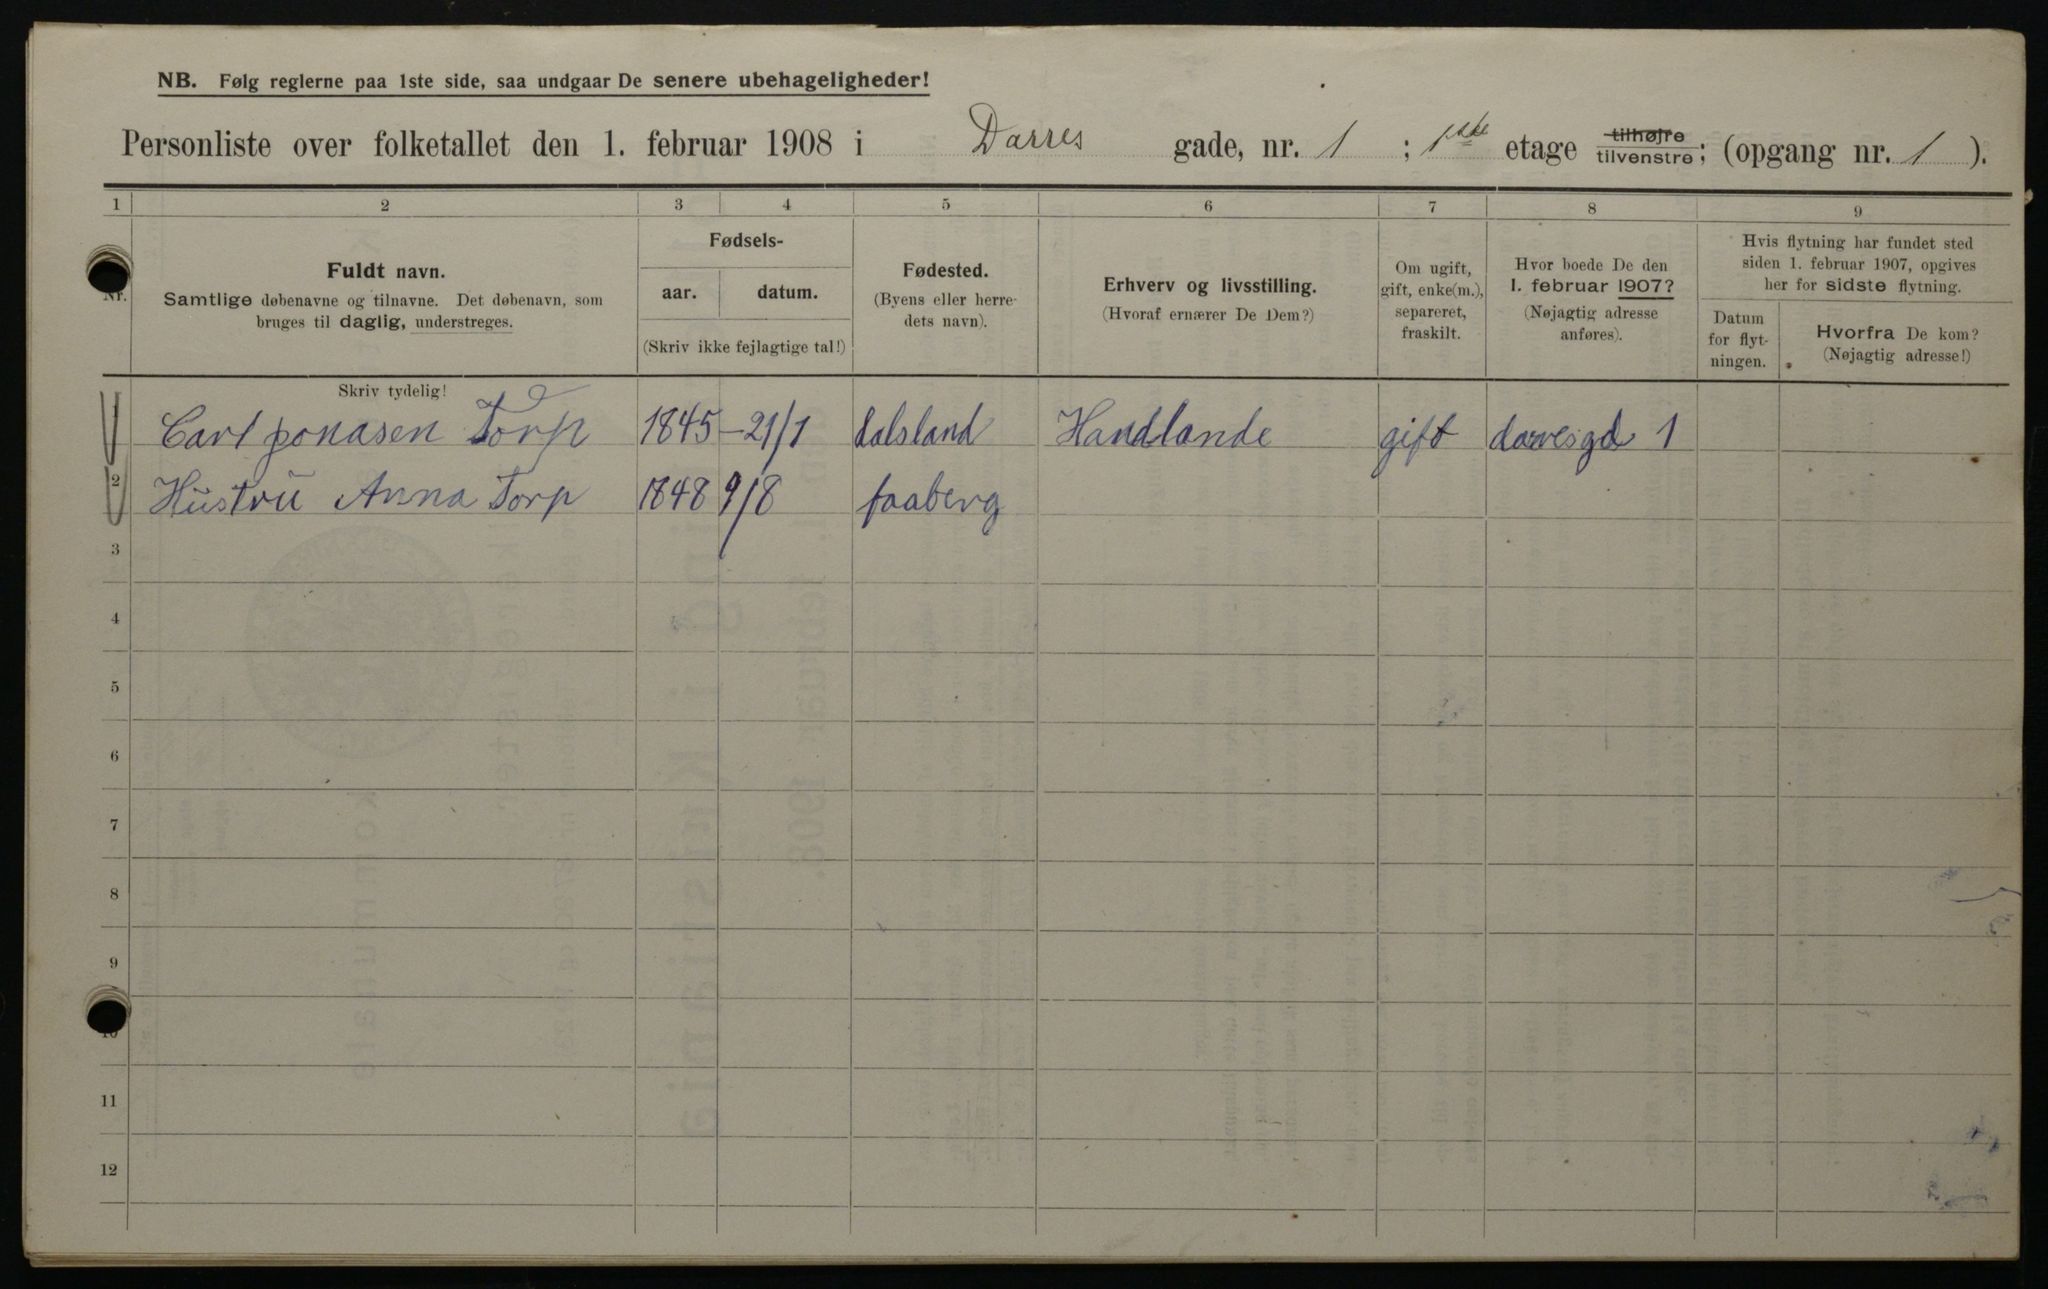 NB. Følg reglerne paa 1ste side, saa undgaar De senere ubehageligheder!
Personliste over folketallet den 1. februar 1908 i Darres gade, nr. 1 ; 1ste etage tilhøjre tilvenstre; (opgang nr. 1 ).
1 2 3 4 5 6 7 8 9
Nr.
Fuldt navn.
Samtlige døbenavne og tilnavne. Det døbenavn, som
bruges til daglig, understreges.
Skriv tydelig!
Fødsels-
aar. datum.
(Skriv ikke fejlagtige tal!)
Fødested.
(Byens eller herre-
dets navn).
Erhverv og livsstilling.
(Hvoraf ernærer De Dem?)
Om ugift,
gift, enke(m.),
separeret,
fraskilt.
Hvor boede De den
1. februar 1907?
(Nøjagtig adresse
anføres).
Hvis flytning har fundet sted
siden 1. februar 1907, opgives
her for sidste flytning.
Datum
for flyt-
ningen.
Hvorfra De kom?
(Nøjagtig adresse!)
1 Carl jonasen Torp 1845 - 21/1 dalsland Handlande gift darresgd 1
2 Hustru Anna Torp 1848 9/8 faaberg
3
4
5
6
7
8
9
10
11
12